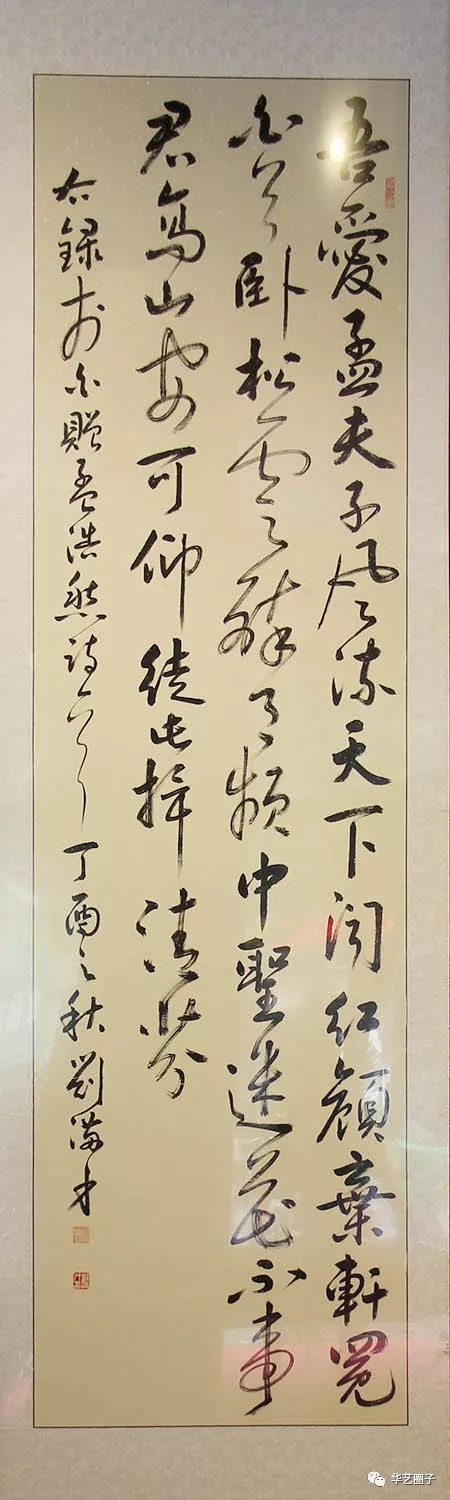 吾愛孟夫子风流天下闻红顏棄軒冕
白首卧松雲醉月頻中聖迷花不事
君高山安可仰徒此揖清芬
右録李白贈孟浩然詩一首丁酉之秋劉满才
华艺圈子